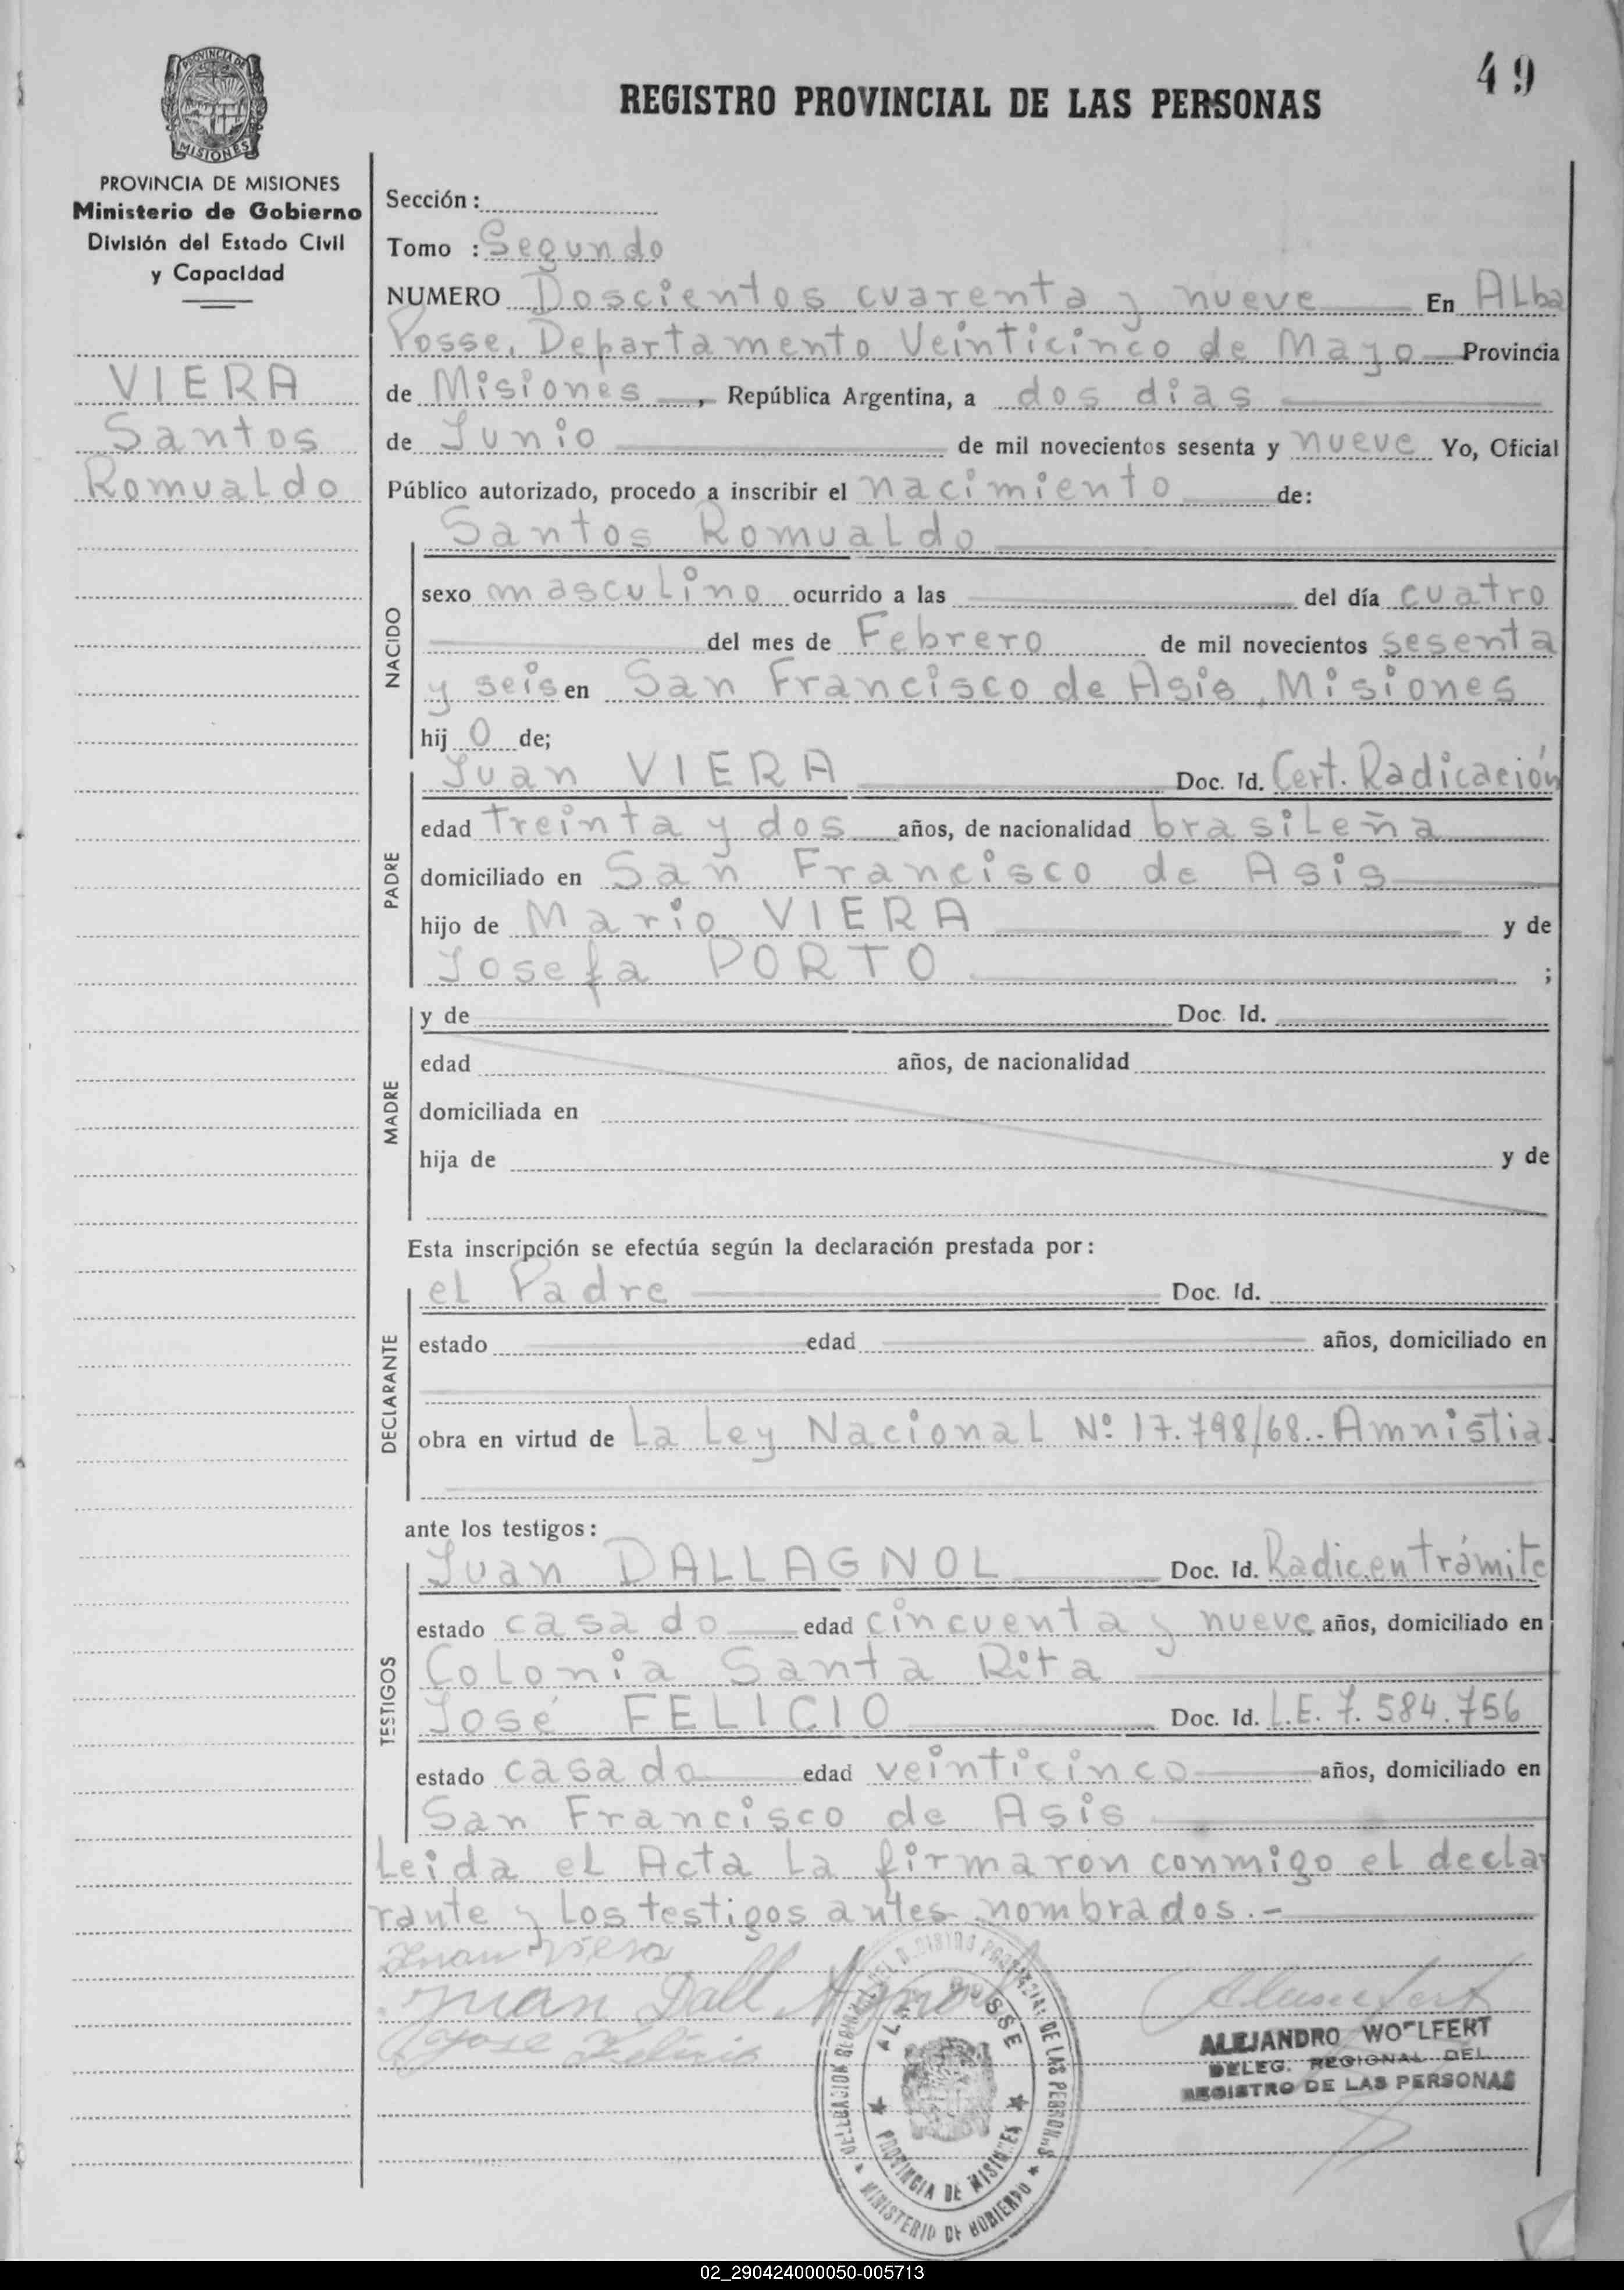 49
REGISTRO PROVINCIAL DE LAS PERSONAS
PROVINCIA DE MISIONES
PROVINCIA DE MISIONES
Ministerio de Gobierno
División del Estado Civil
y Capacidad
VIERA
Santos
Romualdo
Sección :
Tomo : Segundo
NUMERO Doscientos cuarenta y nueve En Alba
Posse, Departamento Veinticinco de Mayo Provincia
de Misiones , República Argentina, a dos dias
de Junio de mil novecientos sesenta y nueve Yo, Oficial
Público autorizado, procedo a inscribir el nacimiento de:
NACIDO
Santos Romualdo
sexo masculino ocurrido a las del día cuatro
del mes de Febrero de mil novecientos sesenta
y seis en San Francisco de Asis, Misiones
hij o de;
PADRE
Juan VIERA Doc. Id. Cert. Radicación
edad treinta y dos años, de nacionalidad brasileña
domiciliado en San Francisco de Asis
hijo de Mario VIERA y de
Josefa PORTO ;
MADRE
y de Doc. Id.
edad años, de nacionalidad
domiciliada en
hija de y de
Esta inscripción se efectúa según la declaración prestada por :
DECLARANTE
el Padre Doc. Id.
estado edad años, domiciliado en
obra en virtud de la Ley Nacional Nº 17.798/68.. Amnistia.
ante los testigos :
TESTIGOS
Juan DALLAGNOL Doc. Id. Radic. en trámite
estado casado edad cincuenta y nueve años, domiciliado en
Colonia Santa Rita
José FELICIO Doc. Id. L.E. 7.584.756
estado casado edad veinticinco años, domiciliado en
San Francisco de Asis
Leida el Acta la firmaron conmigo el decla
rante y los testigos antes nombrados.-
Juan Viera
Juan Dall Agnol
Jose Felicio
ALEJANDRO WOLFERT
DELEG. REGIONAL DEL
REGISTRO DE LAS PERSONAS
ALBA POSSE
PROVINCIA DE MISIONES
MINISTERIO DE GOBIERNO
02_290424000050-005713